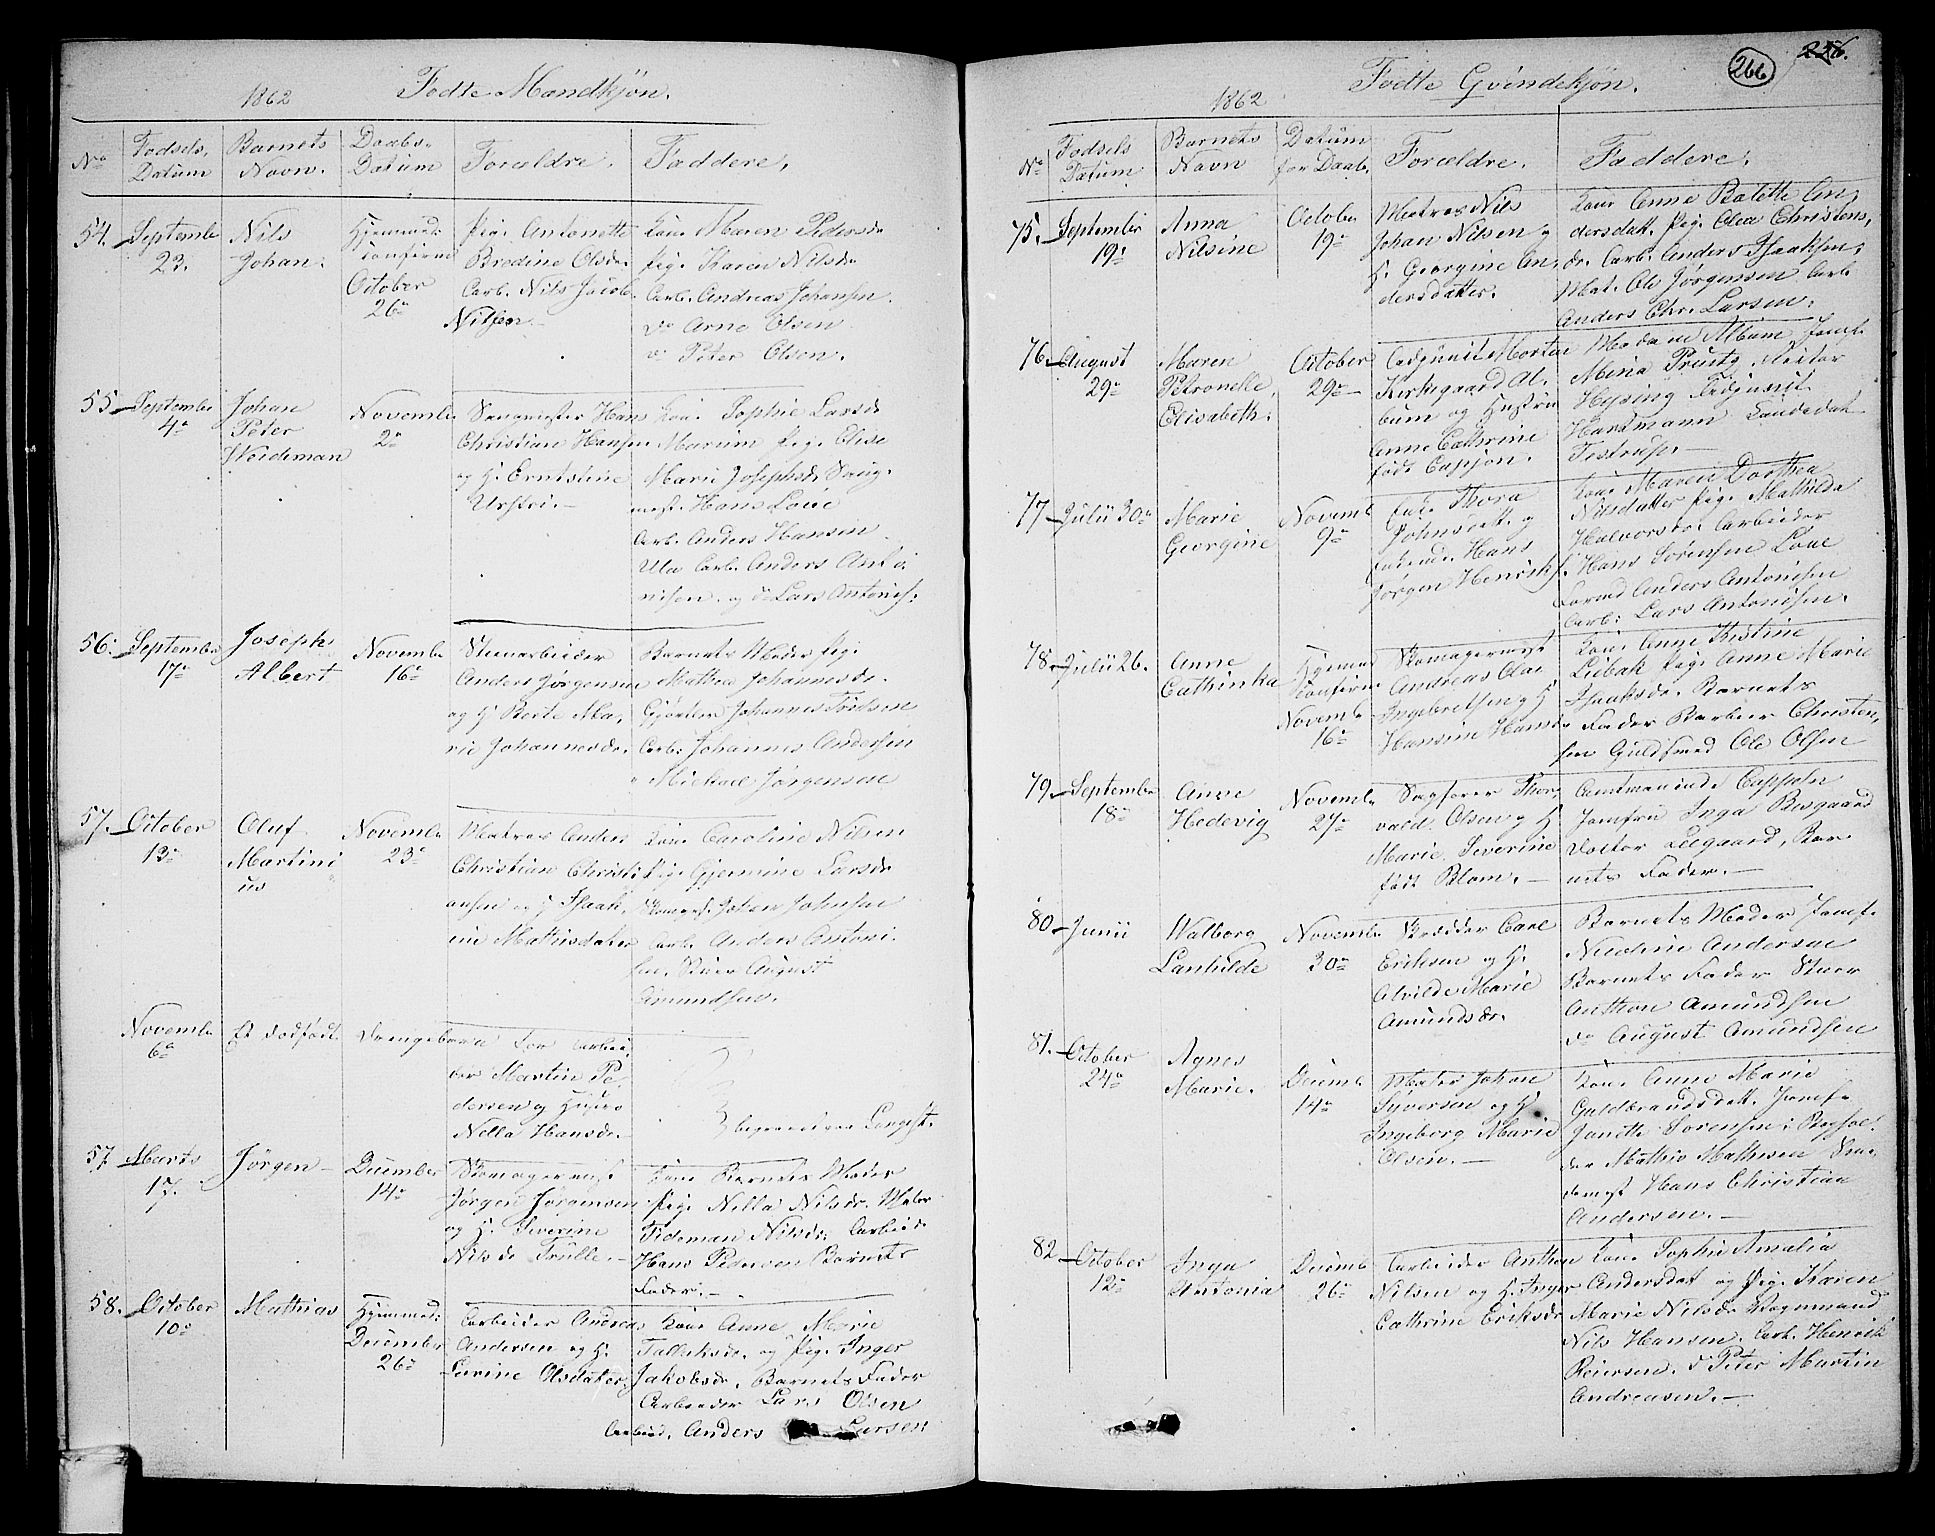 1862
Fødte Mandkjøn.
No
Fødsels Datum
Barnets Navn.
Daabs-Datum
Forældre.
Faddere,
54.
September
23.
Nils
Johan.
Hjemmed:
Confirm
October
26
Pig. Antonette
Bredine Olsdr.
Arb. Nils Jacob
Nilsen.
Kone Maren Pedersdr
Pig. Karen Nilsdr
Arb. Andreas Johansen.
do Arne Olsen
do Peter Olsen.
55
September
4
Johan
Peter
Weideman
Novembr
2
Hans
Christian Hansen
og H. Erntstine
Kone Sophie Larsdr
Marum Pig. Elise
Marie Josephsdr
Hans Loue
Arb. Anders Hansen
Ula Arb. Anders Anto
nisen og do Lars Antonis:
56.
September
17
Joseph
Albert
Novembr
16
Steenarbeider
Anders Jørgensen
og H Berte Ma,
rie Johannesdr.
Barnets Moder Pig.
Mathea Johannesdr.
Johannes
Arb. Johannes Andersen
" Michael Jørgensen
57.
October
13
Oluf
Martini
us
Novembr
23
Matros Anders
Christian Christi
ansen og H Isaak,
ine Mathisdater
Kone Caroline Nilsen
Pig. Gjermine Larsdr
Johan Johnsen
Arb. Anders Antoni
sen, Stuer August
Amundsen.
Novembr
6
Et dødfødt
Drengebarn
for Arbei,
der Martin Pe,
dersen og Hustro
Nella Hansdr.
begravet paa Langest.
57
Marts
17.
Jørgen
Decembr
14
Skomagermest
Jørgen Jørgensen
og H. Severine
Nilsdr Trulle.
Kone Barnets Moder
Pig. Nella Nilsdr. Maler
Tideman Nilsdr. Arbeid
Hans Pedersen Barnets
Fader.
58.
October
10
Mathias
Hjemmed:
Decembr
26
Arbeider Andreas
Andersen og H.
Larine Olsdater
Kone Anne Marie
Falleksdr. og Pig. Inger
Jakobsdr. Barnets Fader
Arbeider Lars Olsen
Arbeid. Anders Larsen
266
226.
1862
Fødte Qvindekjøn.
No
Fødsels Datum
Barnets Navn
Datum for Daab.
Forældre.
Faddere.
75.
September
19
Anna
Nilsine
October
19
Matros Nils
Johan Nilsen og
H. Georgine An,
dersdatter.
Kone Anne Bolette An
dersdatt. Pig. Olea Christens,
dr. Arb. Anders Isaaksen,
Mat. Ole Jørgensen Arb
Anders Chr. Larsen.
76.
August
29
Maren
Petronelle
Elisabeth.
October
29
Adjunct Morten
Kirkegaard Al,
bum og Hustru
Anne Cathrine
født Cappøn.
Madame Album Jomf.
Mina Prutz, Rector
Hysing Adjunct
Hartmann Candidat
Testrup.
77
Julii 30
Marie
Georgine
Novemb
9
Pige Thora
Johnsdatt. og
Hans
Jørgen Henriks.
Kone Maren Dorthea
Nilsdatter Pig. Mathilde
Halvorsdr. Arbeider
Hans Sørensen Loue
Anders Antonisen
Arb: Lars Antonisen.
78.
Julii 26.
Anne
Cathinka
Hjemmed
Confirm
Novembr
16
Skomagermest
Andreas Olai
Ingebretsen og H
Hansine Hansdr
Kone Anne Kistine
Libak Pig. Anne Marie
Isaaksdr. Barnets
Fader Barber Christen,
sen Guldsmed Ole Olsen
79.
September
18
Anne
Hedevig
Novembr
27
Sagfører Thor,
vald Olsen og H
Marie Severine
født Blom.
Amtmaninde Cappeln
Jomfru Inga Bisgaard
Doctor Bar
nets Fader.
80
Junii
Walborg
Lanhilde
Novembr
30
Skrædder Carl
Eriksen og H.
Alvilde Marie
Amundsdr.
Barnets Moder Jomf.
Nicoline Andersen
Barnets Fader Stuer
Anthon Amundsen
do August Amundsen
81.
October
24
Agnes
Marie.
Decemb
14
Maler Johan
Syversen og H.
Ingeborg Marie
Olsen.
Kone Anne Marie
Guldbrandsdatt. Jomf.
Janette Sørensen, Boghol.
der Mathis Mathisen Sme,
demest Hans Christian
Andersen.
82
October
12
Inga
Antonia
Decemb
26
Arbeider Anthon
Nilsen og H. Inger
Cathrine Eriksdr
Kone Sophie Amalia
Andersdat og Pig. Karen
Marie Nilsdr Vognmand
Nils Hansen. Arb. Henrik
Reiersen. d Peter Martin
Andreasen.